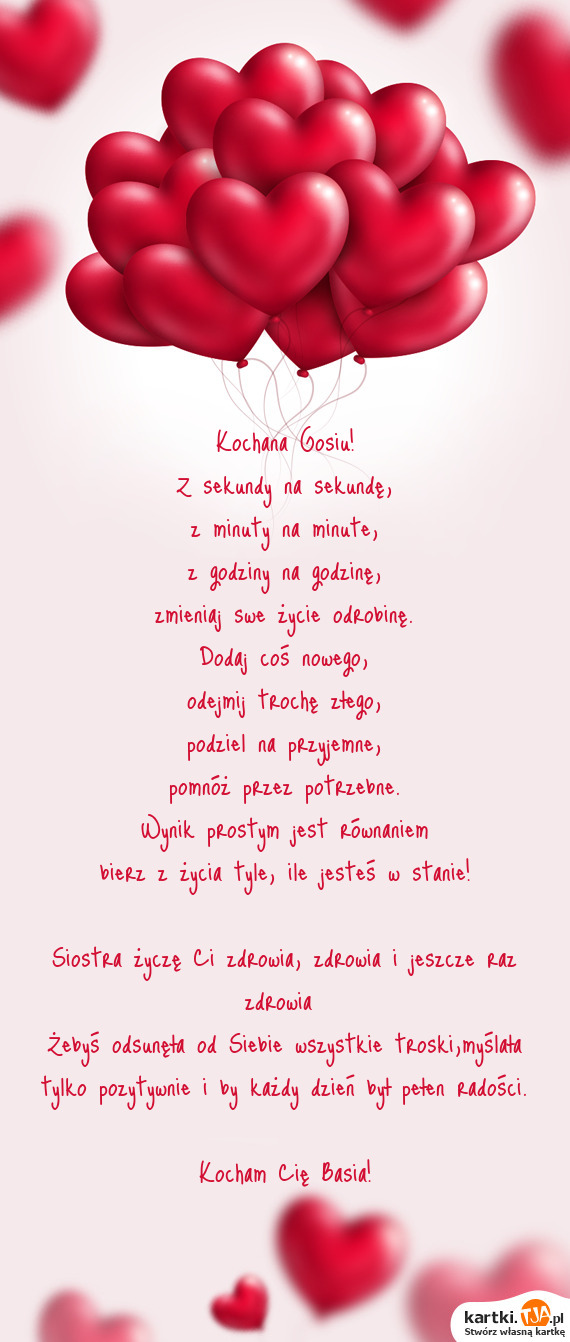 Kochana Gosiu!
Z sekundy na sekundę,
z minuty na minute,
z godziny na godzinę,
zmieniaj swe życie odrobinę.
Dodaj coś nowego,
odejmij trochę złego,
podziel na przyjemne,
pomnóż przez potrzebne.
Wynik prostym jest równaniem
bierz z życia tyle, ile jesteś w stanie!
Siostra życzę Ci zdrowia, zdrowia i jeszcze raz
zdrowia
Żebyś odsunęła od Siebie wszystkie troski,myślała
tylko pozytywnie i by każdy dzień był pełen radości.
Kocham Cię Basia!
kartki.TJA.pl
Stwórz własną kartkę